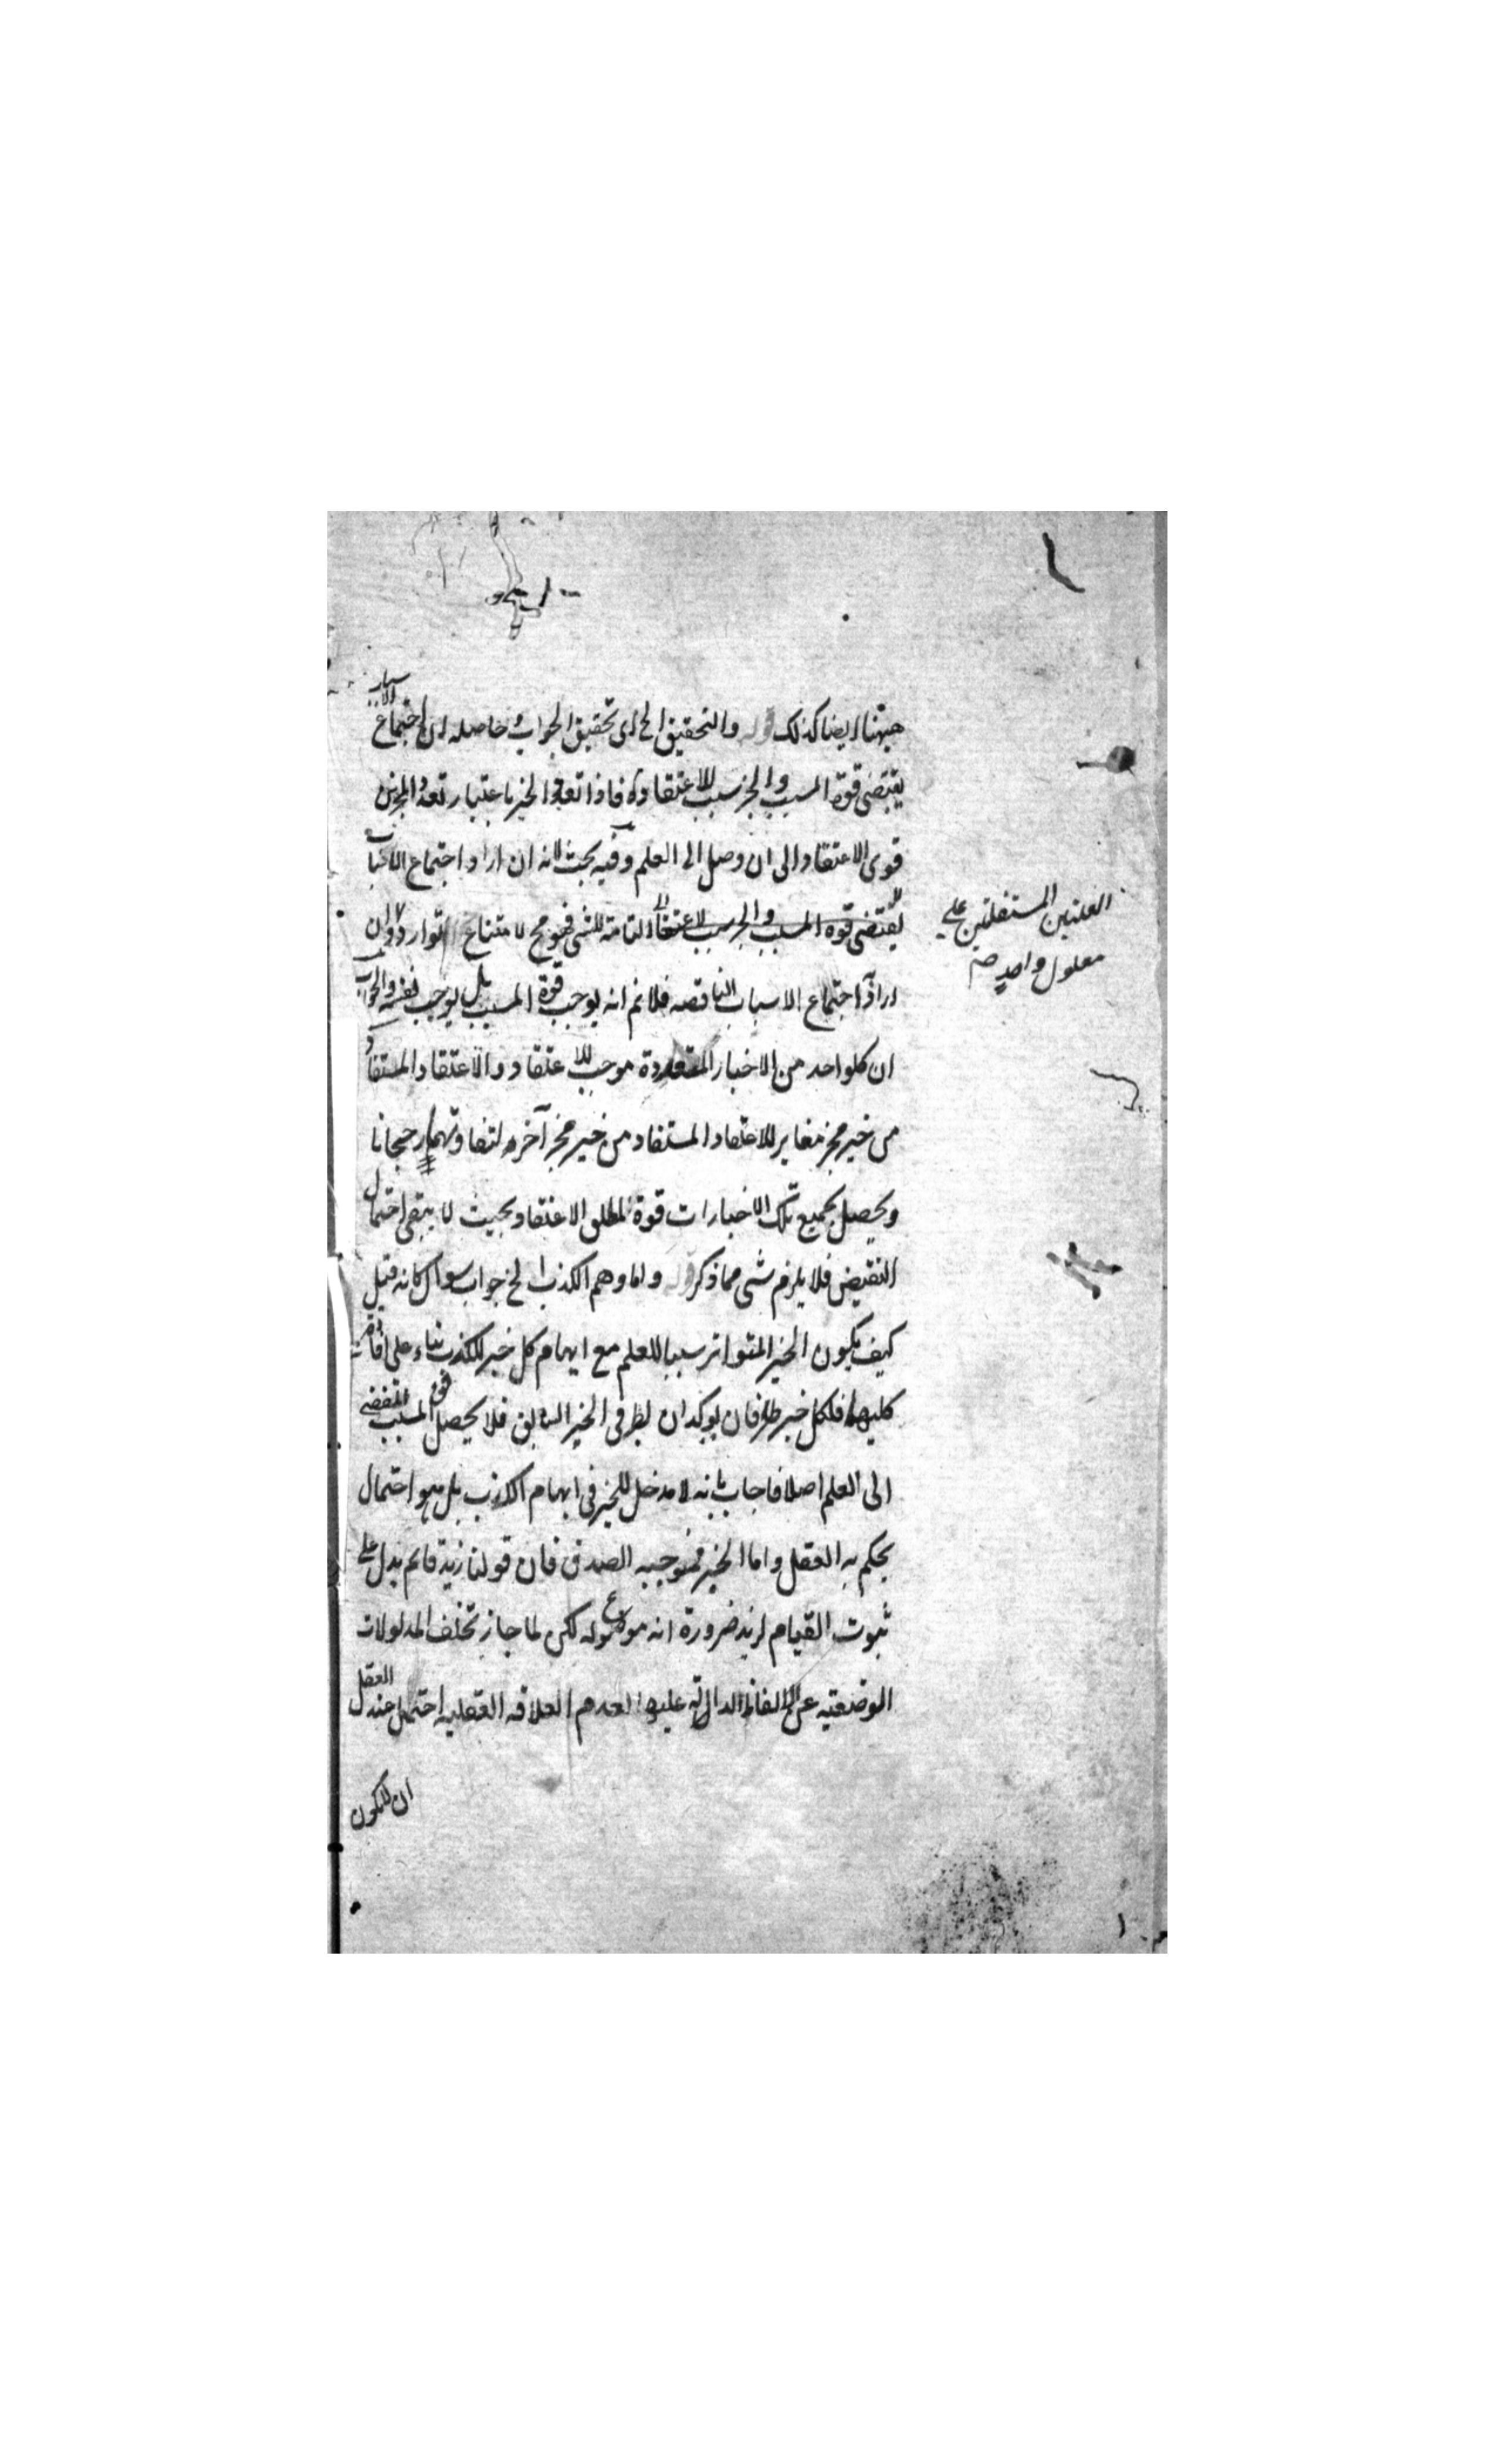 ههنا ايضا كذلك قوله والتحقيق الخ اى تحقيق الجواب حاصله ان اجتماع الاسباب
يقتضى قوة المسبب والخبر سبب للاعتقاد فاذا تعدد الخبر باعتبار تعدد المخبرين
قوى الاعتقاد الى ان وصل الى العلم وفيه بحث لانه ان اراد اجتماع الاسباب
التامة للشى فهو مح لامتناع توارد وان
العلتين المستقلتين على
معلول واحد صح
اراد اجتماع الاسباب الناقصه فلانم انه يوجب قوة المسبب بل يوجب نفسه والجواب
ان كلواحد من الاخبار المتعددة موجب للاعتقاد والاعتقاد المستفاد
من خبر مخبر مغاير للاعتقاد المستفاد من خبر مخبر آخر لتفاوتهما رجحانا
ويحصل بجميع تلك الاخبارات قوة لمطلق الاعتقاد بحيث لا يبقى احتمال
النقيض فلا يلزم شى مما ذكر قوله واما وهم الكذب الخ جواب سوال كانه قيل
كيف يكون الخبر المتواتر سببا للعلم مع ايهام كل خبر للكذب بناء على افادة
كليهما فلكل خبر طرفان يوكدان فى الخبر السابق فلا يحصل قوة المسبب المفضى
الى العلم اصلا فاجاب بانه لا مدخل للخبر فى ايهام الكذب بل هو احتمال
يحكم به العقل واما الخبر فموجبه الصدق فان قولنا زيد قائم يدل على
ثبوت القيام لزيد ضرورة انه موضوع له لكن لما جاز تخلف المدلولات
الوضعيه عن الالفاظ الدالة عليها لعدم العلاقه العقليه احتمل عند العقل
ان لايكون